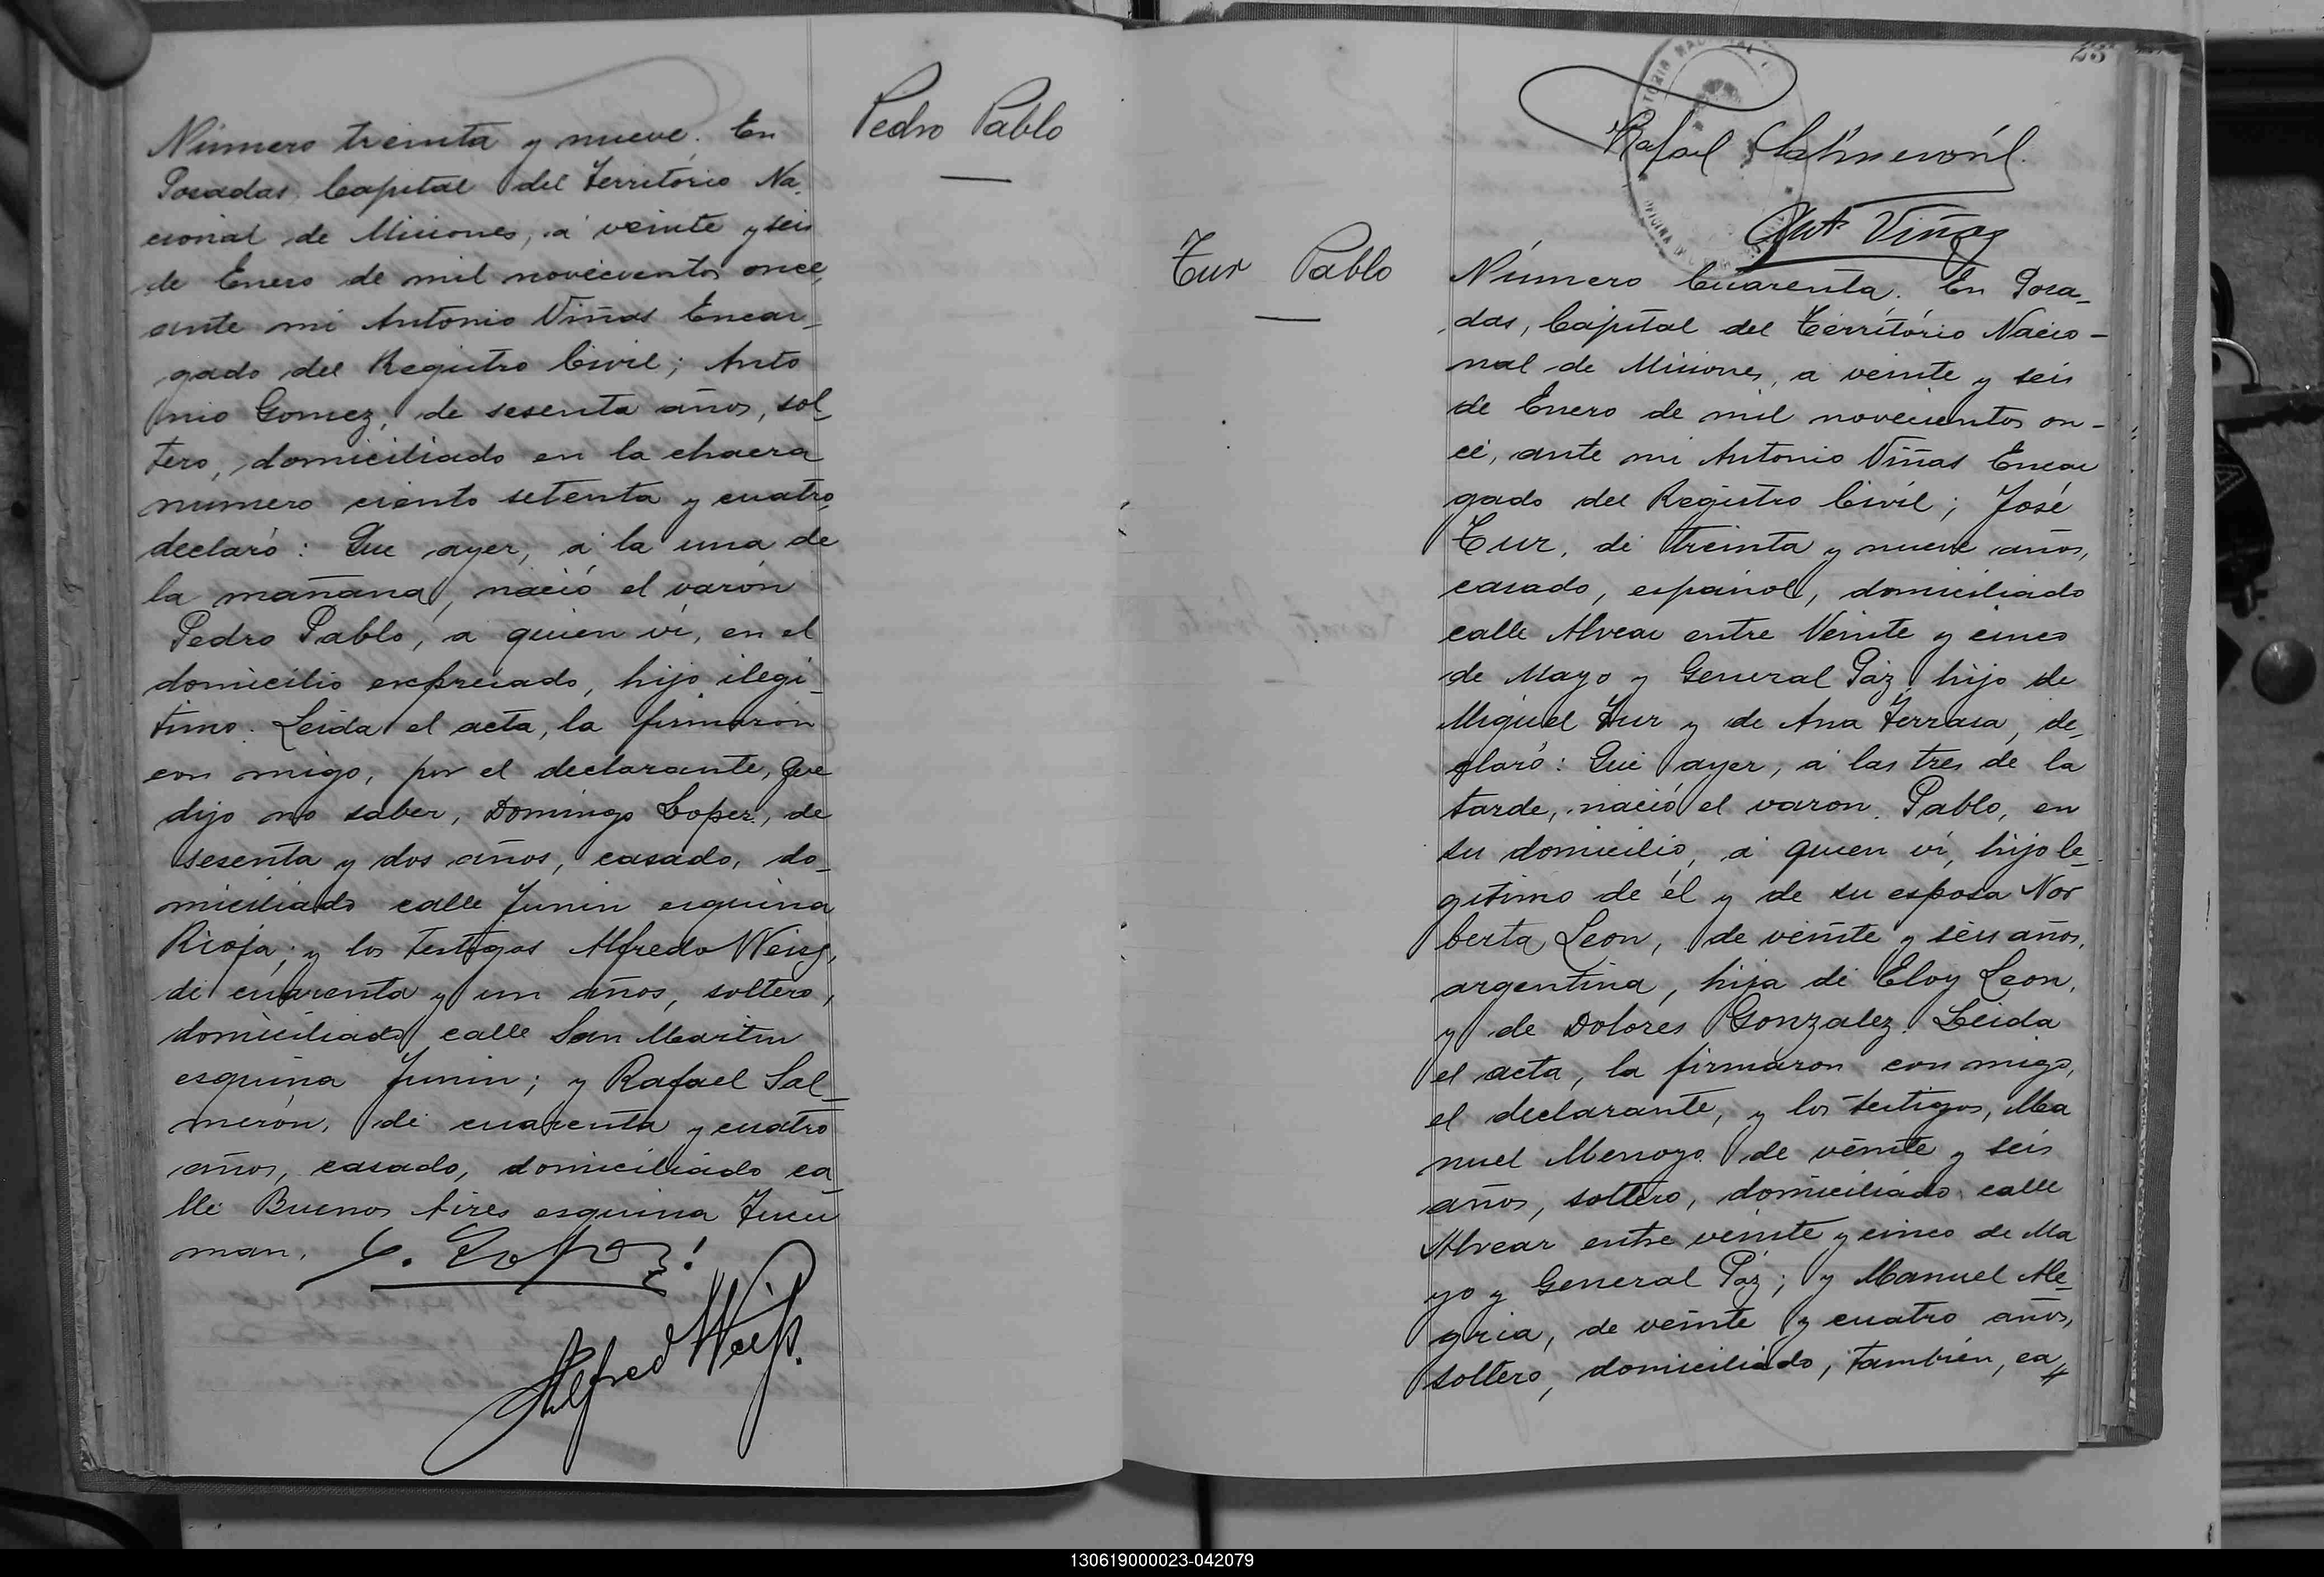 Pedro Pablo
Número treinta y nueve. En
Posadas, Capital del Território Na-
cional de Misiones, á veinte y seis
de Enero de mil novecientos once,
ante mi Antonio Viñas Encar-
gado del Registro Civil; Anto
nio Gomez, de sesenta años, sol-
tero, domiciliado en la chacra
numero ciento setenta y cuatro,
declaró: Que ayer, á la una de
la mañana, nació el varón
Pedro Pablo, a quien ví, en el
domicilio expresado, hijo ilegi-
timo. Leida el acta, la firmaron
con migo, por el declarante, que
dijo no saber, Domingo Lopez, de
sesenta y dos años, casado, do-
miciliado calle Junin esquina
Rioja; y los testigos Alfredo Weiss,
de cuarenta y un años, soltero,
domiciliado calle San Martin
esquina Junin; y Rafael Sal-
merón, de cuarenta y cuatro
años, casado, domiciliado ca-
lle Buenos Aires esquina Tucu
man.
Alfred Weiß.
23
Rafael Salmerón
Ant Viñas
Tur Pablo
Número Cuarenta. En Posa-
das, Capital del Território Nacio-
nal de Misiones, a veinte y seis
de Enero de mil novecientos on-
ce, ante mi Antonio Viñas Encar
gado del Registro Civil; José
Tur, de treinta y nueve años,
casado, español, domiciliado
calle Alvear entre Veinte y cinco
de Mayo y General Paz, hijo de
Miguel Tur y de Ana Ferrasa, de-
claró: Que ayer, á las tres de la
tarde, nació el varon Pablo, en
su domicilio, á quien ví, hijo le-
gitimo de él y de su esposa Nor
berta Leon, de veinte y seis años,
argentina, hija de Eloy Leon,
y de Dolores Gonzalez. Leida
el acta, la firmaron con migo,
el declarante, y los testigos, Ma
nuel Merroyo de veinte y seis
años, soltero, domiciliado calle
Alvear entre veinte y cinco de Ma
yo y General Paz; y Manuel Ale-
gria, de veinte y cuatro años,
soltero, domiciliado, también, ca
130619000023-042079